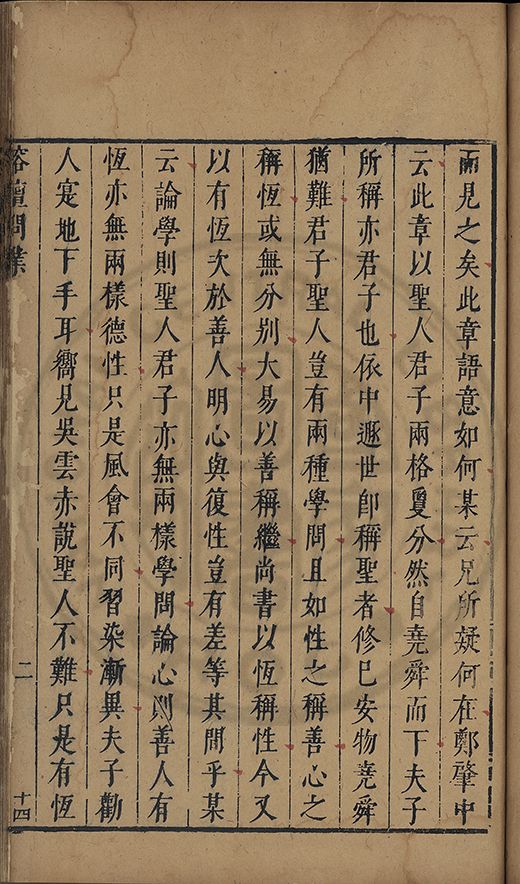 而見之矣此章語意如何某云兄所疑何在鄭肇中
云此章以聖人君子兩格夐分然自堯舜而下夫子
所稱亦君子也依中遯世卽稱聖者修已安物堯舜
猶難君子聖人豈有兩種學問且如性之稱善心之
稱恆或無分别大易以善稱繼尚書以恆稱性今又
以有恆次於善人明心與復性豈有差等其間乎某
云論學則聖人君子亦無兩樣學問論心則善人有
恆亦無兩樣德性只是風會不同習染漸異夫子勸
人寔地下手耳嚮見吳雲赤說聖人不難只是有恆
榕壇問業
二
十四